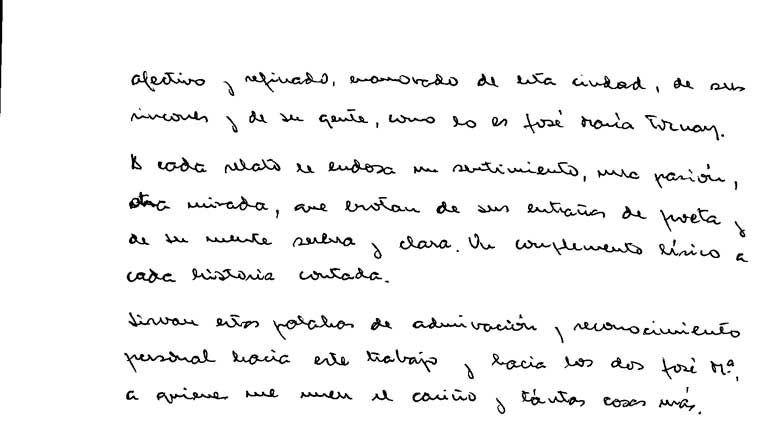 afectivo y refinado, enamorado de esta ciudad, de sus
rincones y de su gente, como lo es José María
A cada relato le endosa un sentimiento, una pasión,
otra mirada, que brotan de sus entrañas de poeta y
de su mente serena y clara. Un complemento lírico a
cada historia contada.
Sirvan estas palabras de admiración y reconocimiento
personal hacia este trabajo y hacia los dos José Mª,
a quienes me unen el cariño y tantas cosas más.